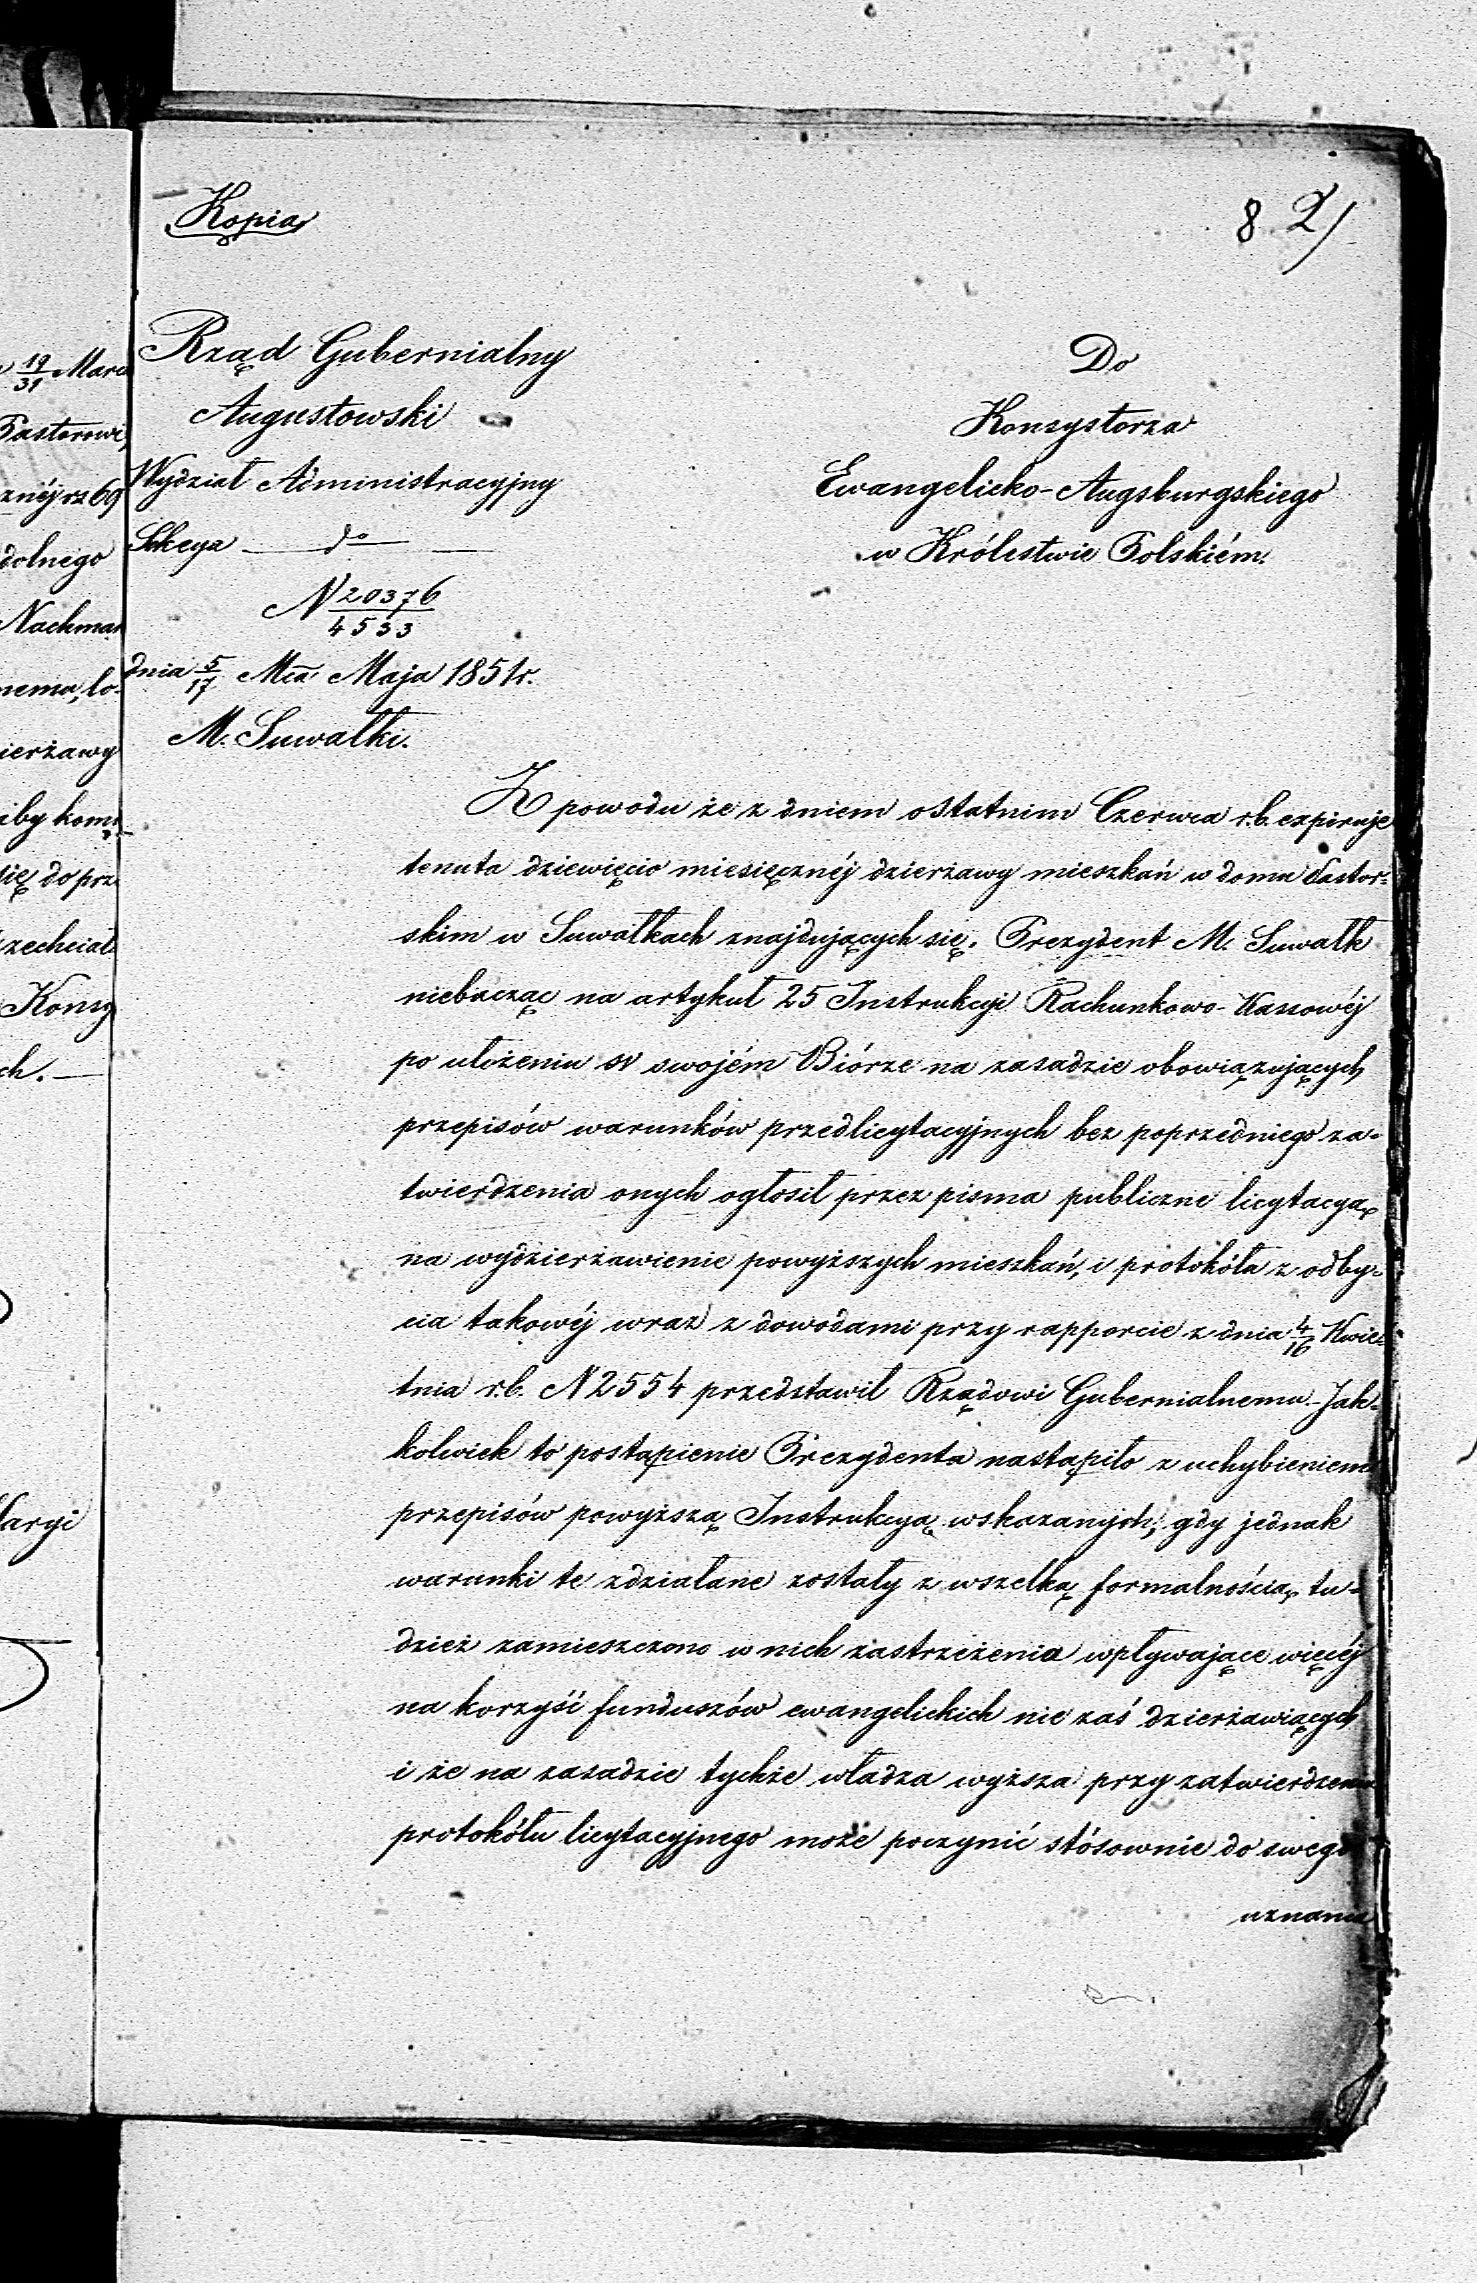 Kopia
8 2/
Rząd Gubernialny
Augustowski
Wydział Administracyjny
Sekcya — do —
N 20376/4533
dnia 5/17 Mca Maja 1851 r.
M. Suwałki.
Do
Konsystorza
Ewangelicko-Augsburgskiego
w Królestwie Polskiém.
Z powodu że z dniem ostatnim Czerwca r.b. expiruje
tenuta dziewięcio miesięcznéj dzierżawy mieszkań w domu Pastor-
skim w Suwałkach znajdujących się. Prezydent M. Suwałk
niebacząc na artykuł 25 Instrukcyi Rachunkowo-Kassowéj
po ułożeniu w swojém Biórze na zasadzie obowiązujących
przepisów warunków przedlicytacyjnych bez poprzedniego za-
twierdzenia onych ogłosił przez pisma publiczne licytacyą
na wydzierżawienie powyższych mieszkań, i protokóła z odby-
cia takowéj wraz z dowodami przy rapporcie z dnia 4/16 Kwie-
tnia r.b. N 2554 przedstawił Rządowi Gubernialnemu. - Jak-
kolwiek to postąpienie Prezydenta nastąpiło z uchybieniem
przepisów powyższą Instrukcyą wskazanych, gdy jednak
warunki te zdziałane zostały z wszelką formalnością, tu-
dzież zamieszczono w nich zastrzeżenia wpływające więcéj
na korzyść funduszów ewangelickich nie zaś dzierżawiących
i że na zasadzie tychże władza wyższa przy zatwierdzeniu
protokółu licytacyjnego może poczynić stósownie do swego
uznania
19/31 Marca
Pastorowi,
znéj rs 69
dolnego
Nachman
nemu, lo-
ierżawy
iby komu
się do prze
zechciał
Konsy
ch. —
laryi